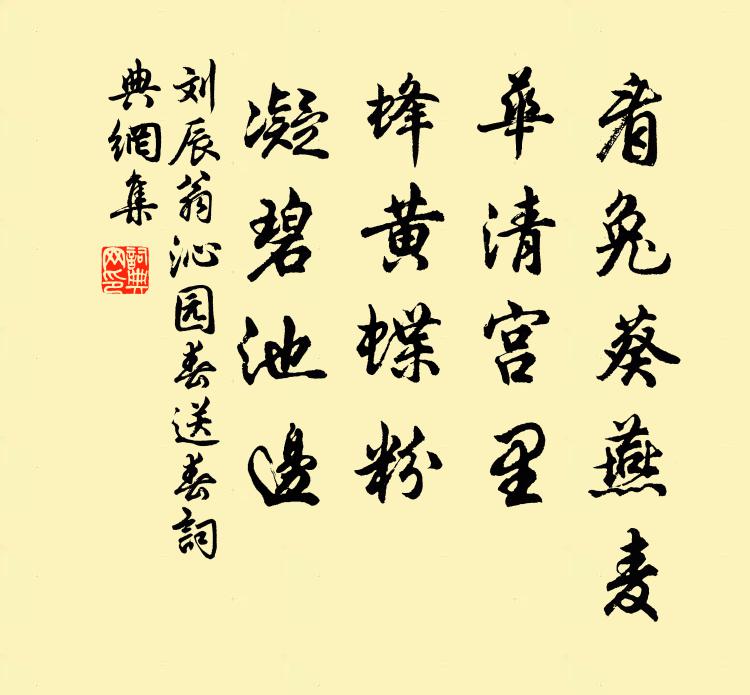 看兔葵燕麦
華清宫里
蜂黄蝶粉
凝碧池邊
刘辰翁沁园春送春詞
典網集
詞典網印